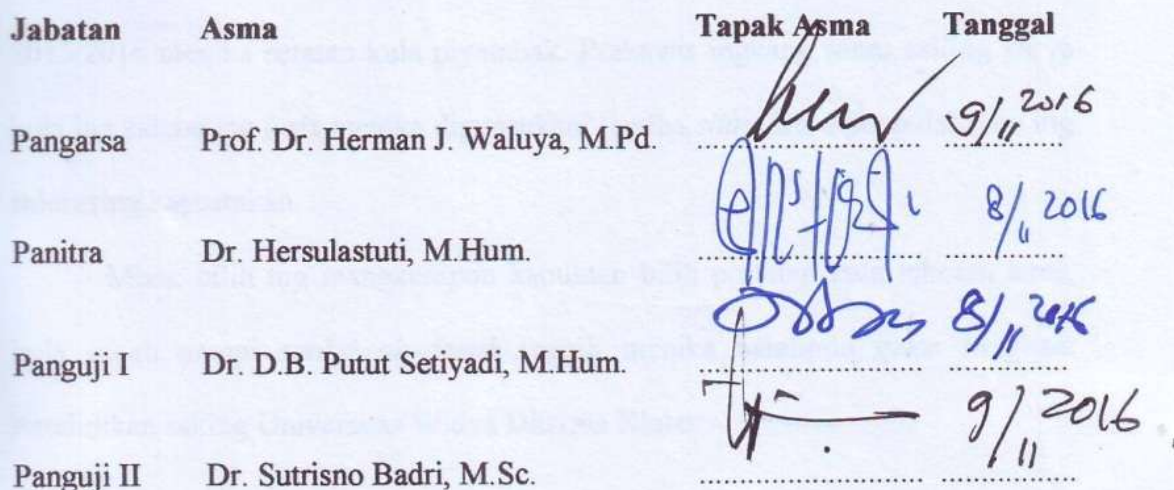 Jabatan Asma Tapak Asma Tanggal
Pangarsa Prof. Dr. Herman J. Waluya, M.Pd. .......................... 9/11 2016
Panitra Dr. Hersulastuti, M.Hum. .......................... 8/11 2016
Panguji I Dr. D.B. Putut Setiyadi, M.Hum. .......................... 8/11 2016
Panguji II Dr. Sutrisno Badri, M.Sc. .......................... 9/11 2016